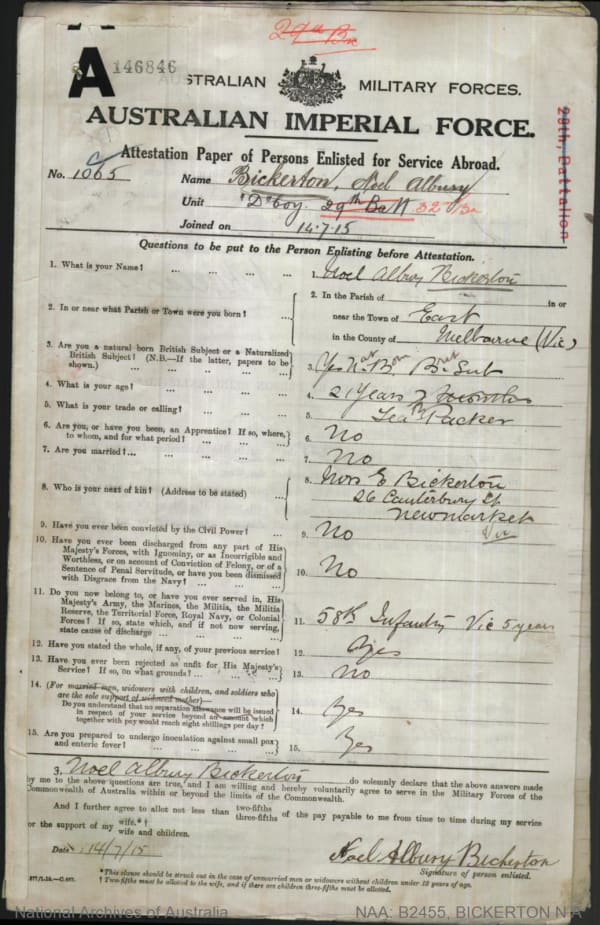 29th Bn
A
146846
AUSTRALIAN MILITARY FORCES.
AUSTRALIAN IMPERIAL FORCE.
29th, Battalion
Attestation Paper of Persons Enlisted for Service Abroad.
No. 1065
Name Bickerton, Noel Albury
Unit "D" Coy. 29th Batt 32 Bn
Joined on 14.7.15
Questions to be put to the Person Enlisting before Attestation.
1. What is your Name? ... ... ... ... 1. Noel Albury Bickerton
2. In or near what Parish or Town were you born? ... 2. In the Parish of in or
near the Town of East
in the County of Melbourne (Vic)
3. Are you a natural born British Subject or a Naturalized
British Subject? (N.B.—If the latter, papers to be
shown.) ... 3. Yes Nat Bn Brit Sub
4. What is your age? ... ... 4. 21 years 7 months
5. What is your trade or calling? ... ... 5. Tea Packer
6. Are you, or have you been, an Apprentice? If so, where,
to whom, and for what period? ... ... 6. No
7. Are you married?... ... ... ... 7. No
8. Who is your next of kin? (Address to be stated) ... 8. Mrs E Bickerton
26 Canterbury St
Newmarket
Vic
9. Have you ever been convicted by the Civil Power? ... 9. No
10. Have you ever been discharged from any part of His
Majesty's Forces, with Ignominy, or as Incorrigible and
Worthless, or on account of Conviction of Felony, or of a
Sentence of Penal Servitude, or have you been dismissed
with Disgrace from the Navy? ... ... 10. No
11. Do you now belong to, or have you ever served in, His
Majesty's Army, the Marines, the Militia, the Militia
Reserve, the Territorial Force, Royal Navy, or Colonial
Forces? If so, state which, and if not now serving,
state cause of discharge ... ... 11. 58th Infantry Vic 5 years
12. Have you stated the whole, if any, of your previous service? 12. Yes
13. Have you ever been rejected as unfit for His Majesty's
Service? If so, on what grounds? ... 13. No
14. (For married men, widowers with children, and soldiers who
are the sole support of widowed mother)—
Do you understand that no separation allowance will be issued
in respect of your service beyond an amount which
together with pay would reach eight shillings per day? 14. Yes
15. Are you prepared to undergo inoculation against small pox
and enteric fever? ... ... 15. Yes
I, Noel Albury Bickerton do solemnly declare that the above answers made
by me to the above questions are true, and I am willing and hereby voluntarily agree to serve in the Military Forces of the
Commonwealth of Australia within or beyond the limits of the Commonwealth.
And I further agree to allot not less than two-fifths
three-fifths of the pay payable to me from time to time during my service
for the support of my wife.*†
wife and children.
Date 14/7/15
Noel Albury Bickerton
Signature of person enlisted.
*This clause should be struck out in the case of unmarried men or widowers without children under 18 years of age.
† Two-fifths must be allotted to the wife, and if there are children three-fifths must be allotted.
National Archives of Australia
NAA: B2455, BICKERTON N A